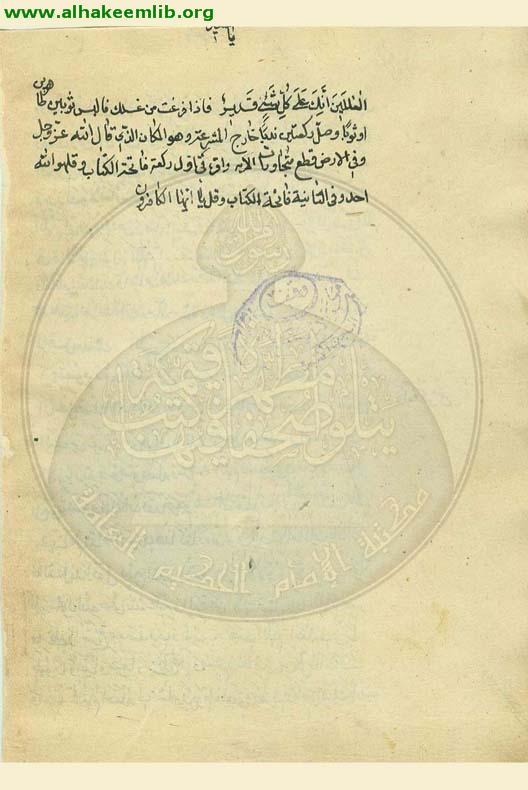 www.alhakeemlib.org
يا
العالمين انك على كل شئ قدير فاذا فرغت من غسلك فالبس ثوبين طاهرين
او ثوبا وصل ركعتين خارج المشرعة وهو المكان الذي قال الله عز وجل
وفي الارض قطع متجاورات الآية واقرء في اول ركعة فاتحة الكتاب وقل هو الله
احد وفي الثانية فاتحة الكتاب وقل يا ايها الكافرون
رسول الله
مطهرة
فيها كتب قيمة
يتلو صحفا
مكتبة الإمام الحكيم العامة